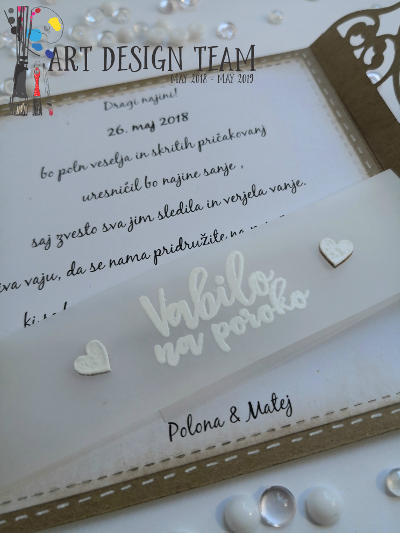 ART DESIGN TEAM
MAY 2018 - MAY 2019
Dragi najini!
26. maj 2018
bo poln veselja in skritih pričakovanj
uresničil bo najine sanje ,
saj zvesto sva jim sledila in verjela vanje.
vaju, da se nama pridružite
Vabilo
na poroko
Polona & Matej